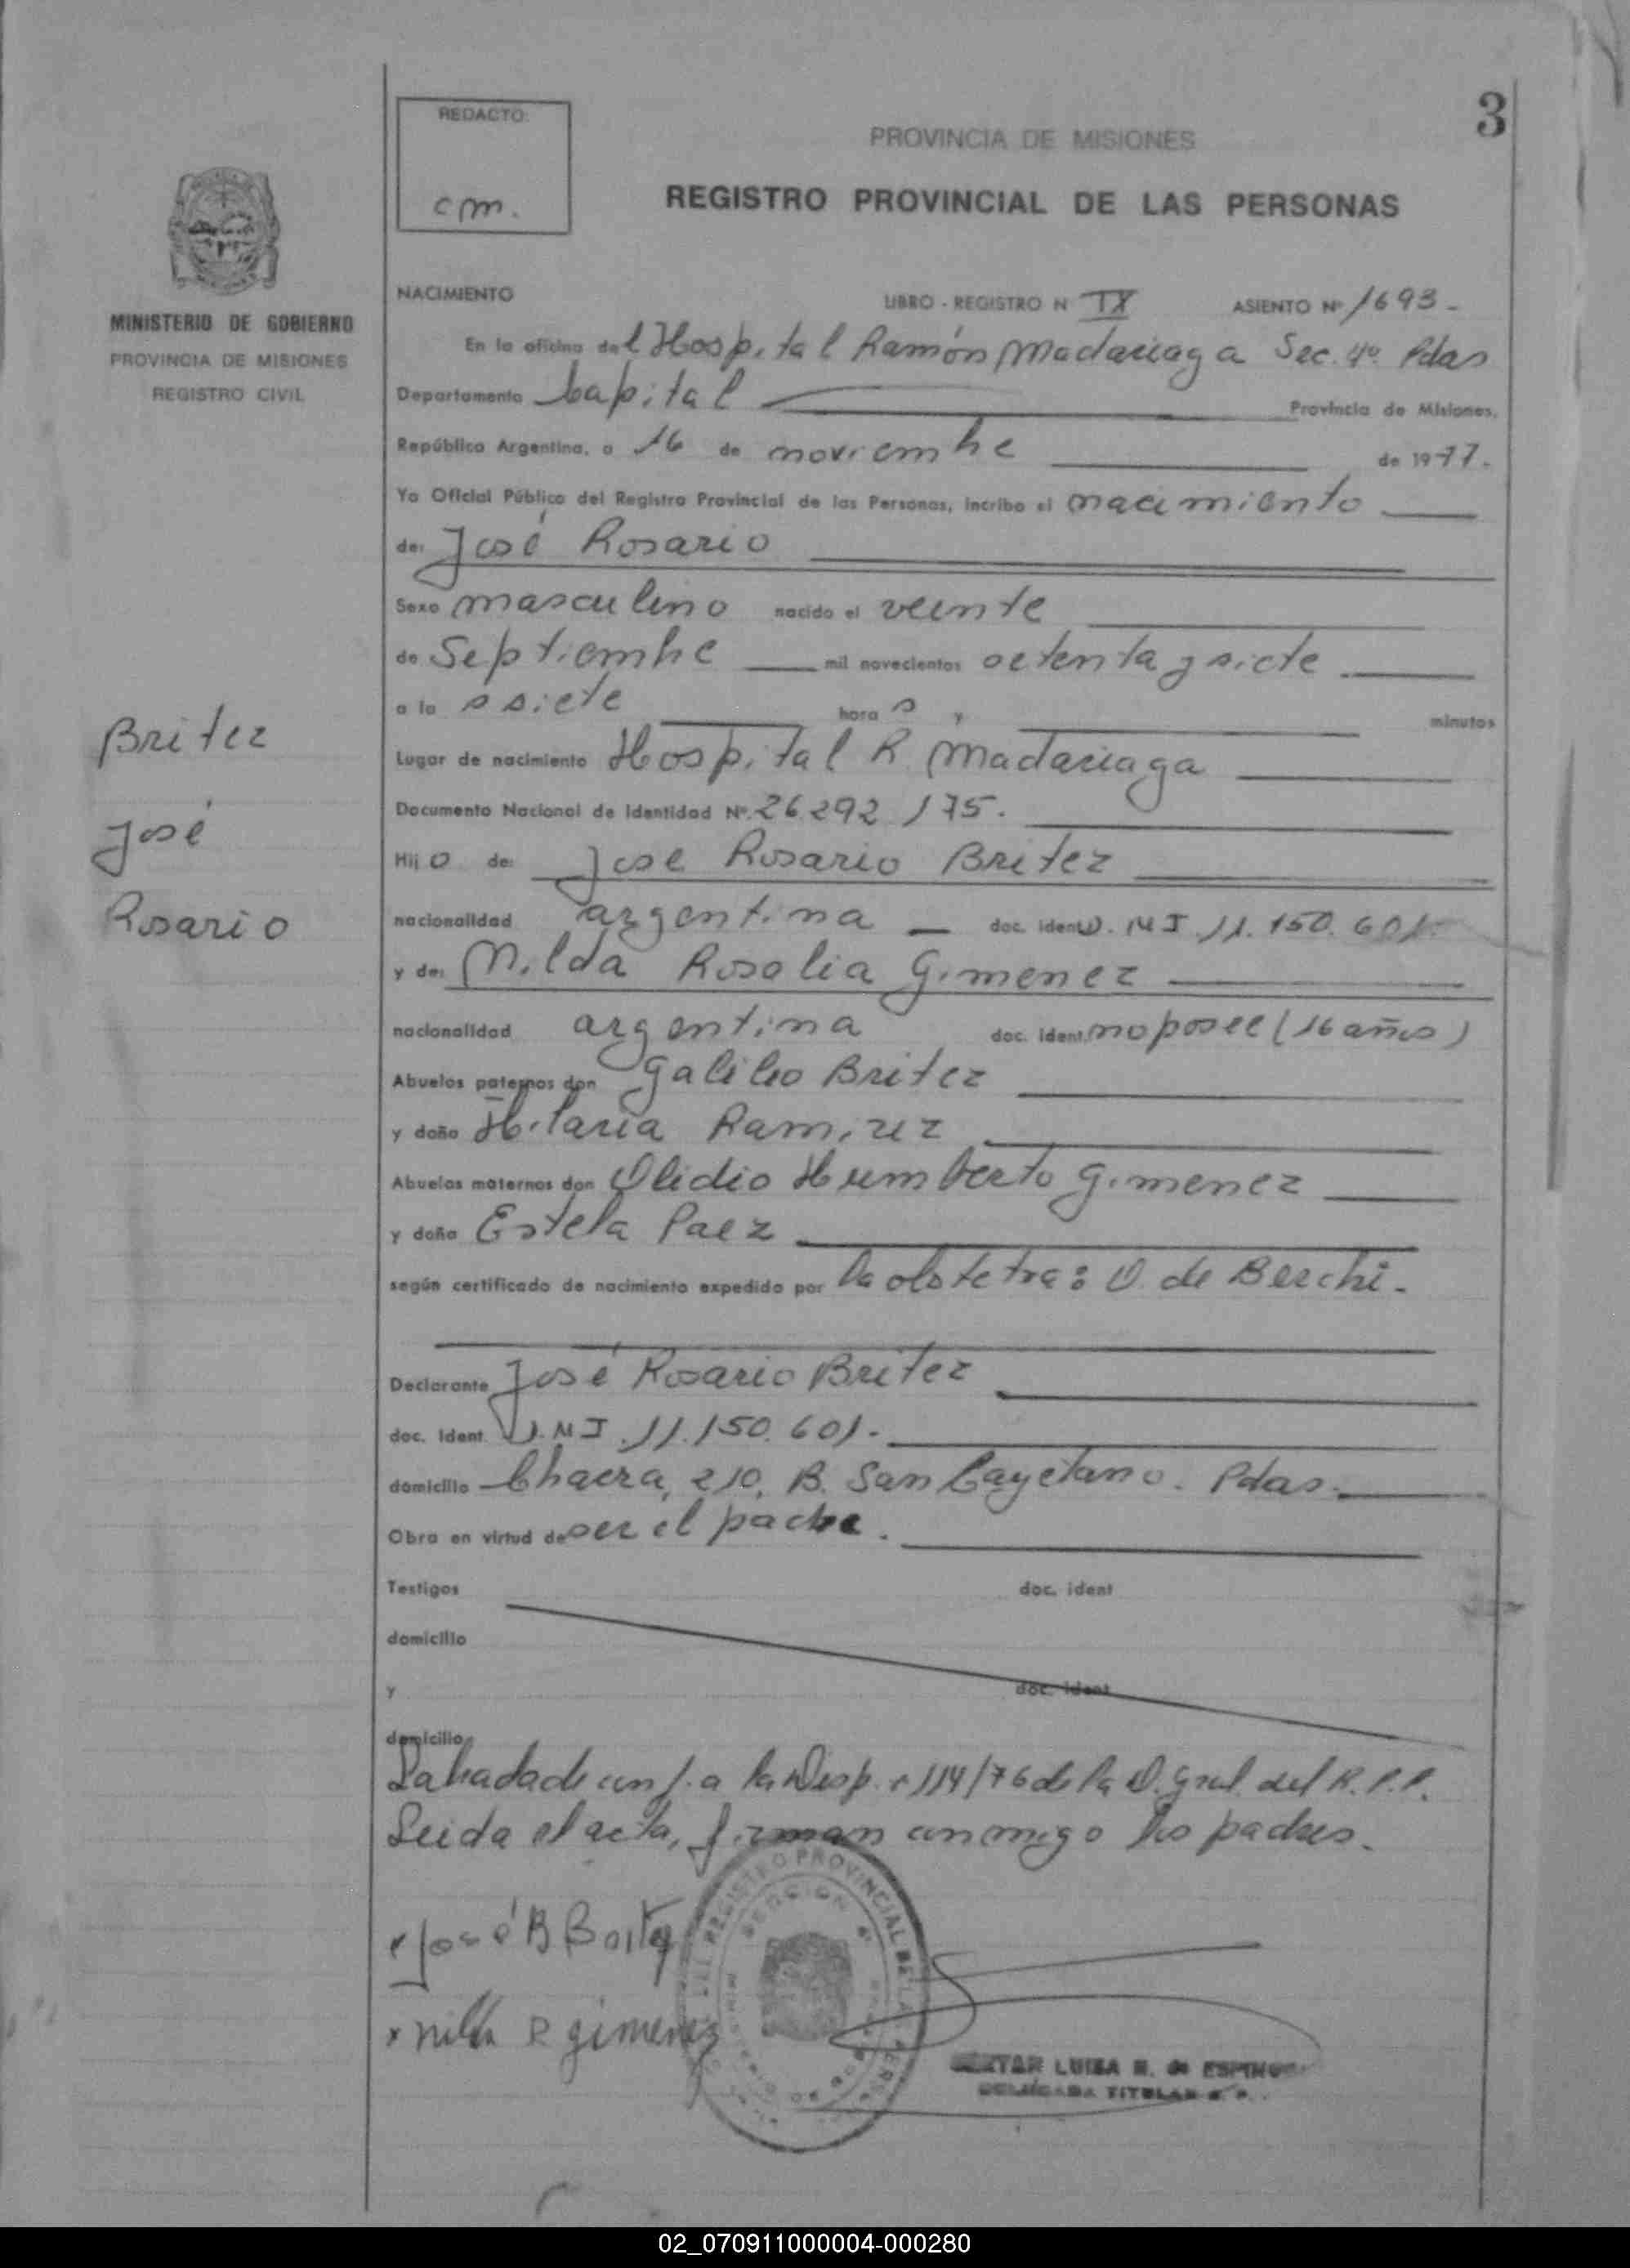 3
REDACTO:
cm.
PROVINCIA DE MISIONES
REGISTRO PROVINCIAL DE LAS PERSONAS
MINISTERIO DE GOBIERNO
PROVINCIA DE MISIONES
REGISTRO CIVIL
NACIMIENTO LIBRO - REGISTRO N IX ASIENTO Nº 1693-
En la oficina del Hospital Ramón Madariaga Sec. 4º Pdas
Departamento Capital Provincia de Misiones,
República Argentina, a 16 de noviembre de 1977.
Yo Oficial Público del Registro Provincial de las Personas, incribo el nacimiento
de: José Rosario
Sexo masculino nacido el veinte
de Septiembre mil novecientos setenta y siete
a la s siete hora s y minutos
Britez
José
Rosario
Lugar de nacimiento Hospital R. Madariaga
Documento Nacional de Identidad Nº 26.292.175.
Hij o de: José Rosario Britez
nacionalidad argentina doc. ident D.N.I. 11.150.601.
y de: Nilda Rosalia Gimenez
nacionalidad argentina doc. ident. no posee (16 años)
Abuelos paternos don Galileo Britez
y doña Hilaria Ramirez
Abuelos maternos don Olidio Humberto Gimenez
y doña Estela Paez
según certificado de nacimiento expedido por la obstetra: O. de Berchi.
Declarante José Rosario Britez
doc. ident. D.N.I. 11.150.601.
domicilio Chacra, 210, B. San Cayetano. Pdas.
Obra en virtud de ser el padre.
Testigos doc. ident
domicilio
y doc. ident
domicilio
Labrada de conf. a la Disp. 114/76 de la D. Gral. del R.P.P.
Leida el acta, firman conmigo los padres.
x José R Britez
x nilda R gimenez
REGISTRO PROVINCIAL DE LAS PERSONAS
SECCION 4º
LUISA E. de ESPINOSA
DELEGADA TITULAR
02_070911000004-000280